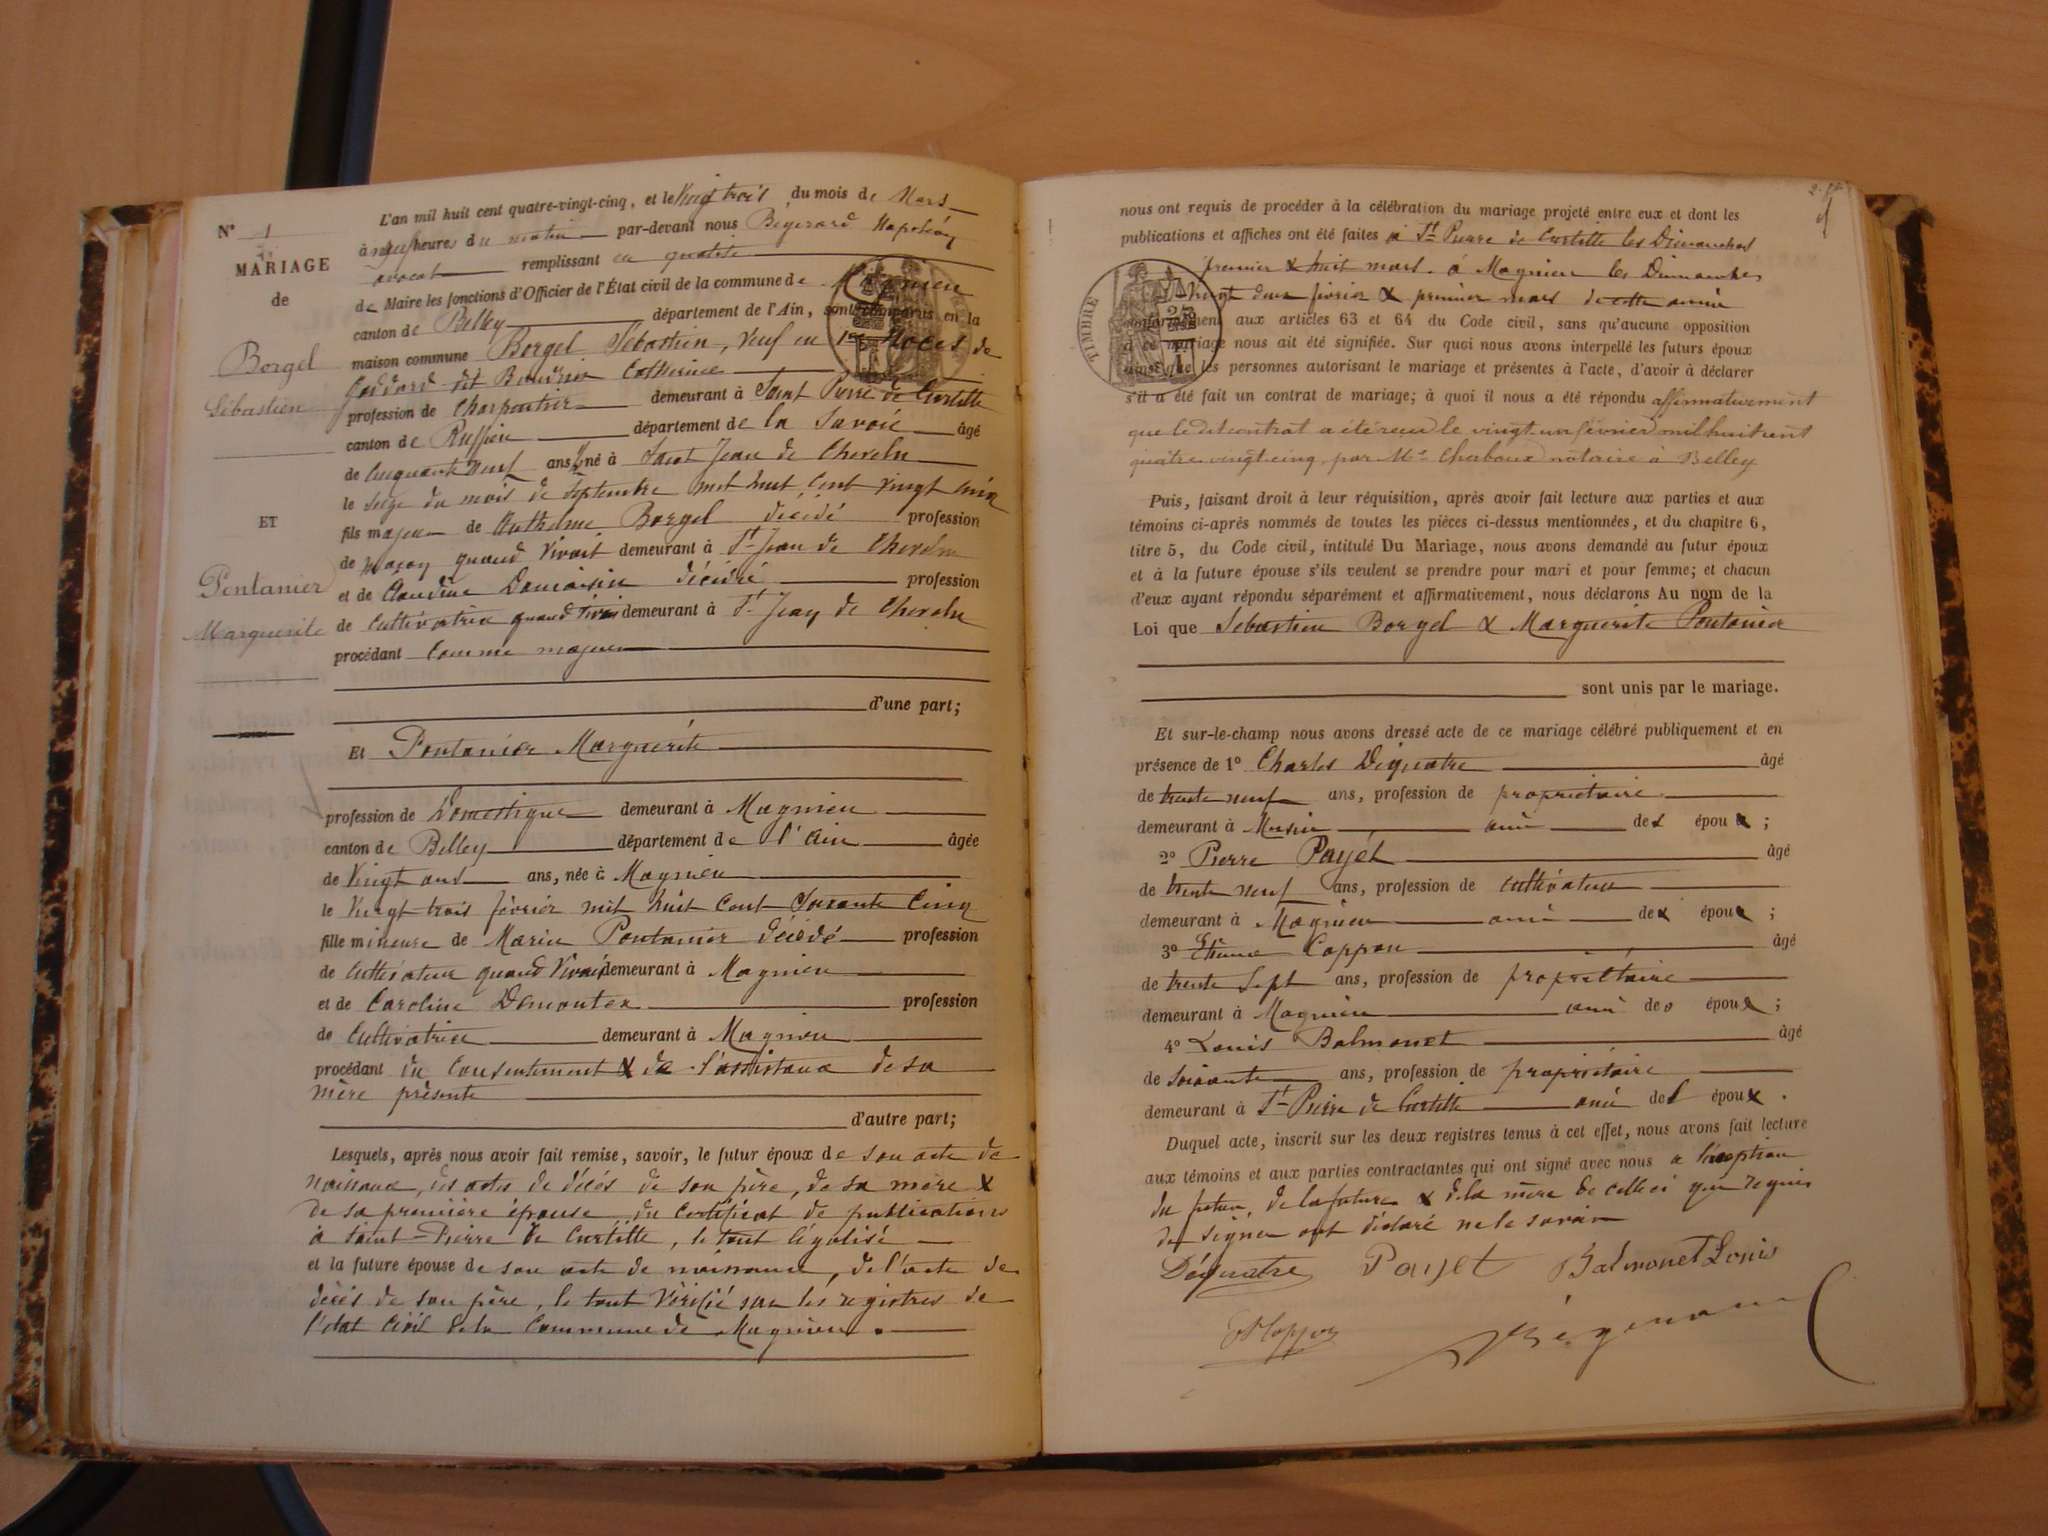 N° 1
MARIAGE
de
Borgel
Sébastien
ET
Pontanier
Marguerite
L'an mil huit cent quatre-vingt-cinq, et le Vingt trois du mois de Mars
à neuf heures du matin par-devant nous Napoléon
avocat remplissant en qualité
de Maire les fonctions d'Officier de l'État civil de la commune de Magnieu
canton de Belley département de l'Ain, sont comparus en la
maison commune Borgel Sébastien, Veuf en 1res Noces de
dit Catherine
profession de Charpentier demeurant à Saint Pierre de Curtille
canton de Ruffieu département de la Savoie âgé
de Cinquante neuf ans, né à Saint Jean de Chevelu
le seize du mois de Septembre mil huit cent vingt cinq
fils majeur de Anthelme Borgel décédé profession
de maçon quand vivait demeurant à St Jean de Chevelu
et de Claudine Domaisin décédée profession
de Cultivatrice quand vivait demeurant à St Jean de Chevelu
procédant comme majeur
d'une part;
Et Pontanier Marguerite
profession de Domestique demeurant à Magnieu
canton de Belley département de l'Ain âgée
de Vingt ans ans, née à Magnieu
le Vingt trois février mil huit cent soixante cinq
fille mineure de Marin Pontanier décédé profession
de Cultivateur quand vivait demeurant à Magnieu
et de Caroline Demontex profession
de Cultivatrice demeurant à Magnieu
procédant du consentement & de l'assistance de sa
mère présente
d'autre part;
Lesquels, après nous avoir fait remise, savoir, le futur époux de son acte de
naissance, des actes de décés de son père, de sa mère &
de sa première épouse du certificat de publications
à Saint-Pierre de Curtille, le tout légalisé
et la future épouse de son acte de naissance, de l'acte de
décès de son père, le tout vérifié sur les registres de
l'état civil de la Commune de Magnieu.
nous ont requis de procéder à la célébration du mariage projeté entre eux et dont les
publications et affiches ont été faites à St Pierre de Curtille les Dimanches
premier & huit mars. à Magnieu les Dimanches
vingt deux février & premier mars de cette année
TIMBRE
conformément aux articles 63 et 64 du Code civil, sans qu'aucune opposition
à ce mariage nous ait été signifiée. Sur quoi nous avons interpellé les futurs époux
ainsi que les personnes autorisant le mariage et présentes à l'acte, d'avoir à déclarer
s'il a été fait un contrat de mariage; à quoi il nous a été répondu affirmativement
que le dit contrat a été reçu le vingt un février mil huit cent
quatre vingt cinq par Me notaire à Belley
Puis, faisant droit à leur réquisition, après avoir fait lecture aux parties et aux
témoins ci-après nommés de toutes les pièces ci-dessus mentionnées, et du chapitre 6,
titre 5, du Code civil, intitulé Du Mariage, nous avons demandé au futur époux
et à la future épouse s'ils veulent se prendre pour mari et pour femme; et chacun
d'eux ayant répondu séparément et affirmativement, nous déclarons Au nom de la
Loi que Sébastien Borgel & Marguerite Pontanier
sont unis par le mariage.
Et sur-le-champ nous avons dressé acte de ce mariage célébré publiquement et en
présence de 1° Charles Déquatre âgé
de trente neuf ans, profession de propriétaire
demeurant à ami des époux;
2° Pierre Payet âgé
de trente neuf ans, profession de cultivateur
demeurant à Magnieu ami des époux;
3° Étienne Coppon âgé
de trente Sept ans, profession de propriétaire
demeurant à Magnieu ami des époux;
4° Louis Balmonet âgé
de soixante ans, profession de propriétaire
demeurant à St Pierre de Curtille ami des époux.
Duquel acte, inscrit sur les deux registres tenus à cet effet, nous avons fait lecture
aux témoins et aux parties contractantes qui ont signé avec nous a l'exception
du futur, de la future & de la mère de celle ci que requis
de signer ont déclaré ne le savoir
Déquatre Payet Balmonet Louis